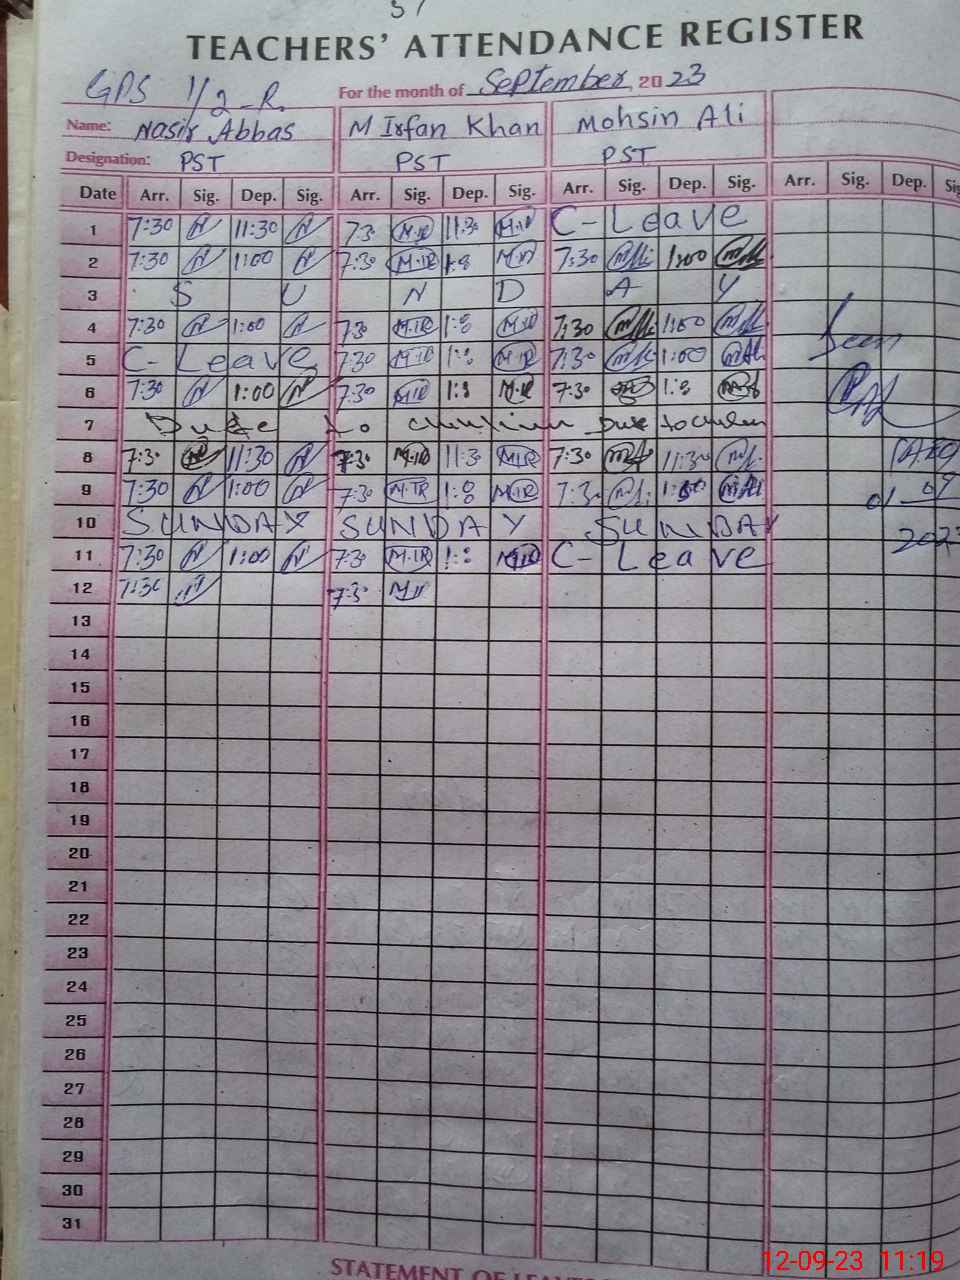 TEACHERS' ATTENDANCE REGISTER
GPS 1/2-R. For the month of September, 2023
Name: Nasir Abbas M Irfan Khan Mohsin Ali
Designation: PST PST PST
Date Arr. Sig. Dep. Sig. Arr. Sig. Dep. Sig. Arr. Sig. Dep. Sig. Arr. Sig. Dep. Sig
1 7:30 N 11:30 N 7:30 M.IR 11:30 M.IR C-Leave
2 7:30 N 1:00 N 7:30 M.IR 1:00 M.IR 7:30 1:00
3 S U N D A Y
4 7:30 N 1:00 N 7:30 M.IR 1:00 M.IR 7:30 1:00 Seen
5 C-Leave 7:30 M.IR 1:00 M.IR 7:30 1:00
6 7:30 N 1:00 N 7:30 M.IR 1:00 M.IR 7:30 1:00
7 to
8 7:30 N 11:30 N 7:30 M.IR 11:30 M.IR 7:30 11:30
9 7:30 N 1:00 N 7:30 M.IR 1:00 M.IR 7:30 1:00 01-09
10 SUNDAY SUNDAY SUNDAY 2023
11 7:30 N 1:00 N 7:30 M.IR 1:00 M.IR C-Leave
12 7:30 N 7:30 M.IR
13
14
15
16
17
18
19
20
21
22
23
24
25
26
27
28
29
30
31
STATEMENT OF LEAVES
12-09-23 11:19